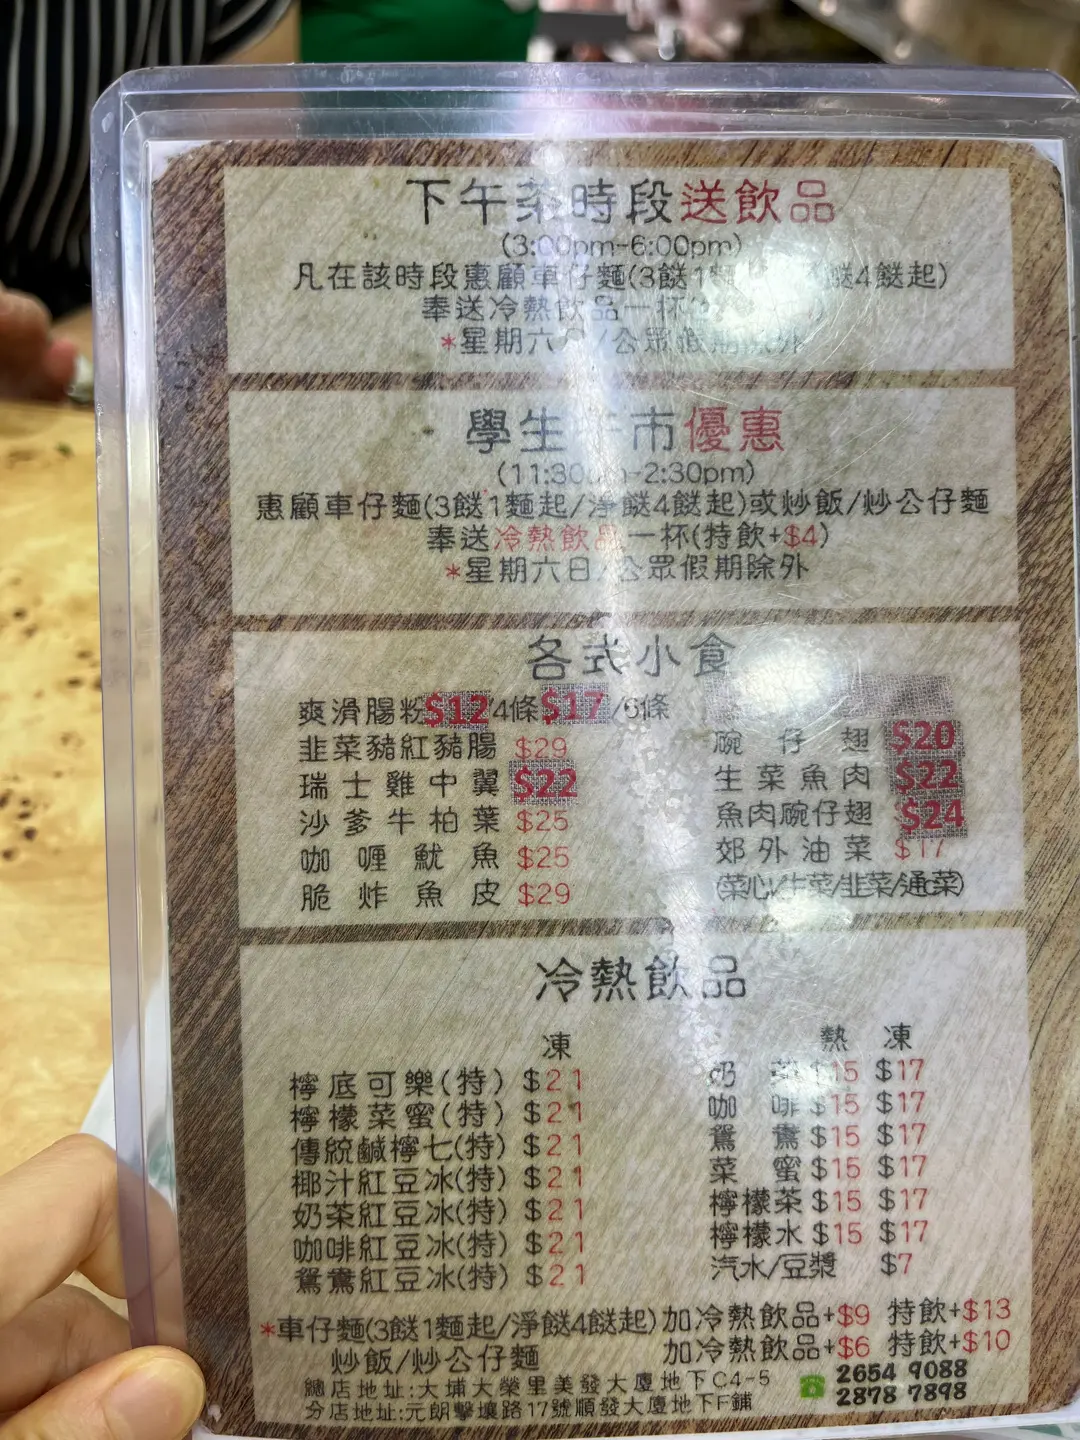 下午茶時段送飲品
(3:00pm-6:00pm)
凡在該時段惠顧車仔麵(3餸1麵 餸4餸起)
奉送冷熱飲品一杯
*星期六 /公眾假期除外
學生午市優惠
(11:30am-2:30pm)
惠顧車仔麵(3餸1麵起/淨餸4餸起)或炒飯/炒公仔麵
奉送冷熱飲品一杯(特飲+$4)
*星期六日/公眾假期除外
各式小食
爽滑腸粉$12/4條$17/6條
韭菜豬紅豬腸 $29
瑞士雞中翼 $22
沙爹牛柏葉 $25
咖喱魷魚 $25
脆炸魚皮 $29
碗仔翅 $20
生菜魚肉 $22
魚肉碗仔翅 $24
郊外油菜 $17
(菜心/生菜/韭菜/通菜)
冷熱飲品
凍
檸底可樂(特) $21
檸檬菜蜜(特) $21
傳統鹹檸七(特) $21
椰汁紅豆冰(特) $21
奶茶紅豆冰(特) $21
咖啡紅豆冰(特) $21
鴛鴦紅豆冰(特) $21
熱 凍
奶茶 $15 $17
咖啡 $15 $17
鴛鴦 $15 $17
菜蜜 $15 $17
檸檬茶 $15 $17
檸檬水 $15 $17
汽水/豆漿 $7
*車仔麵(3餸1麵起/淨餸4餸起)加冷熱飲品+$9 特飲+$13
炒飯/炒公仔麵 加冷熱飲品+$6 特飲+$10
總店地址:大埔大榮里美發大廈地下C4-5 2654 9088
分店地址:元朗擊壤路17號順發大廈地下F鋪 2878 7898